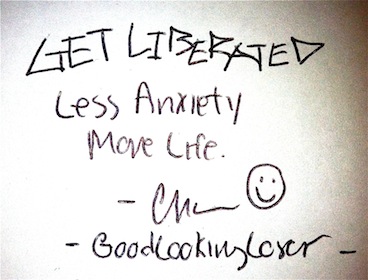 GET LIBERATED
Less Anxiety
More Life.
-
- GoodLookingLoser -